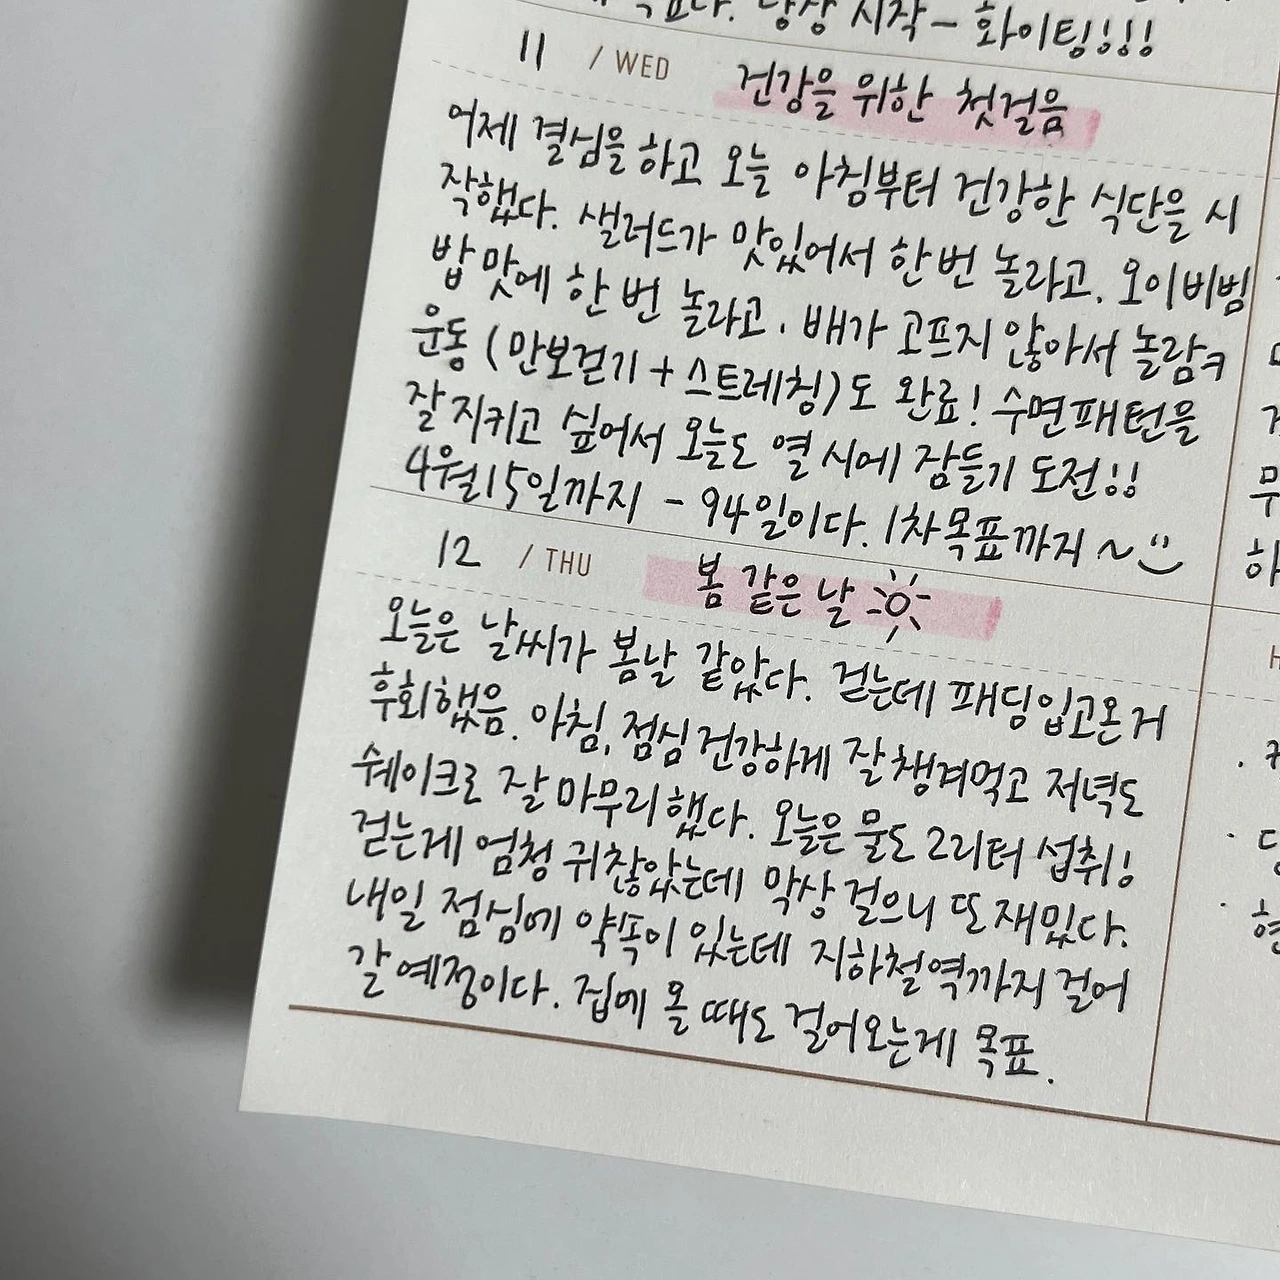 당장 시작- 화이팅!!!
11 / WED 건강을 위한 첫걸음
어제 결심을 하고 오늘 아침부터 건강한 식단을 시
작했다. 샐러드가 맛있어서 한 번 놀라고. 오이비빔
밥 맛에 한 번 놀라고. 배가 고프지 않아서 놀람ㅋ
운동 (만보걷기 + 스트레칭)도 완료! 수면패턴을
잘 지키고 싶어서 오늘도 열 시에 잠들기 도전!!
4월15일까지 - 94일이다. 1차목표까지 ~
12 / THU 봄 같은 날
오늘은 날씨가 봄날 같았다. 걷는데 패딩입고온거
후회했음. 아침, 점심 건강하게 잘 챙겨먹고 저녁도
쉐이크로 잘 마무리했다. 오늘은 물도 2리터 섭취!
걷는게 엄청 귀찮았는데 막상 걸으니 또 재밌다.
내일 점심에 약속이 있는데 지하철역까지 걸어
갈 예정이다. 집에 올 때도 걸어오는게 목표.